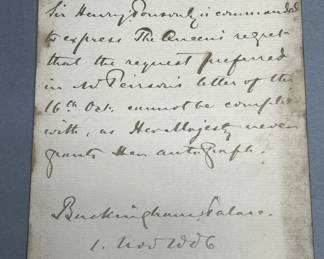 Sir Henry Ponsonby is commanded
to express The Queen's regret
that the request preferred
in Mr Peirson's letter of the
16th Oct. cannot be complied
with, as Her Majesty never
grants Her autograph.
Buckingham Palace.
1. Nov 1886